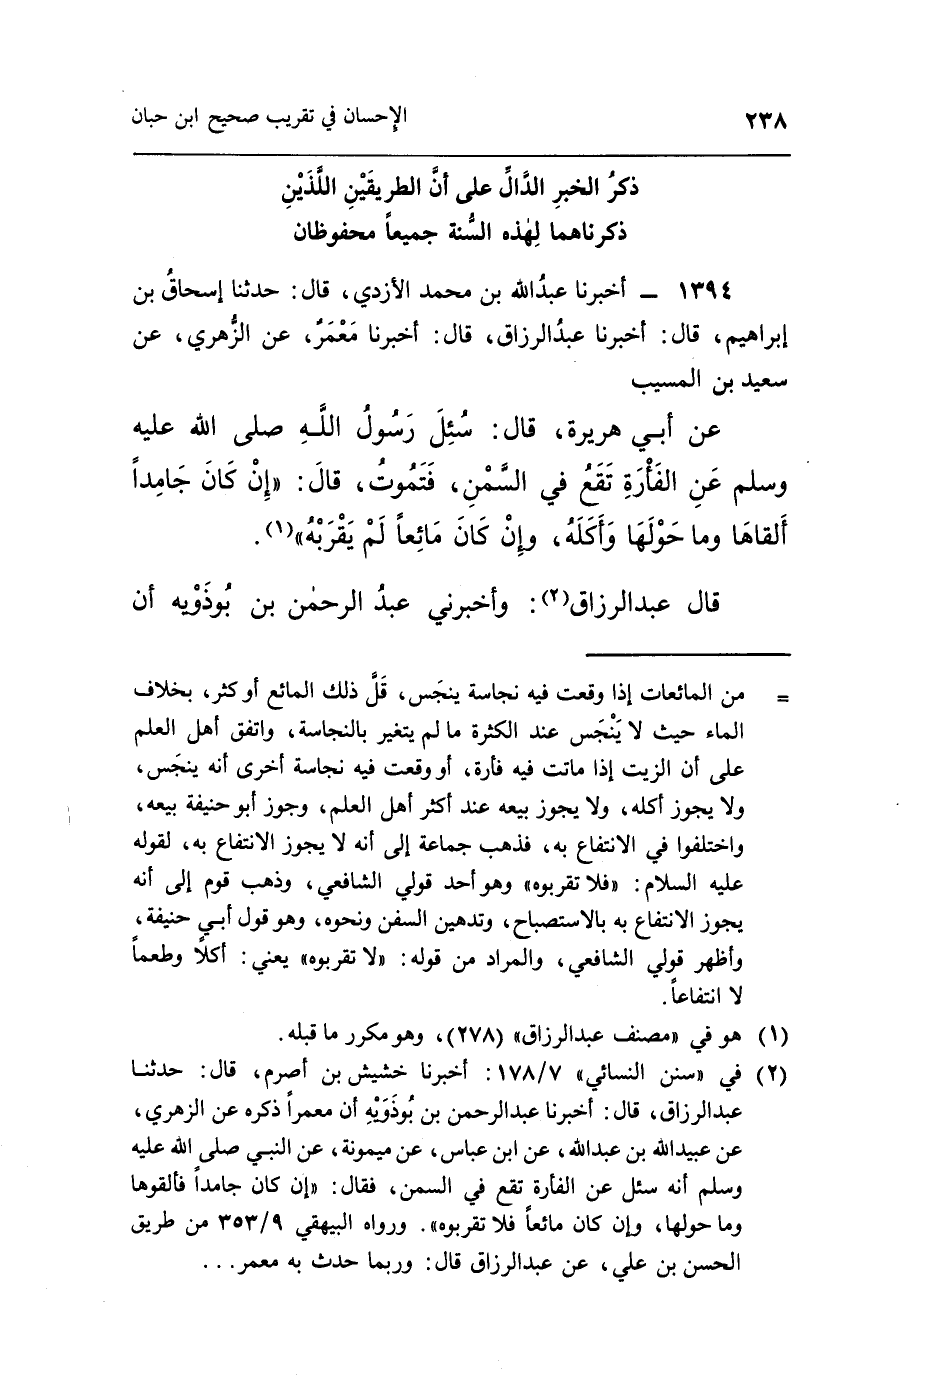 ٢٣٨ الإحسان في تقريب صحيح ابن حبان
ذكرُ الخبرِ الدَّالِّ على أنَّ الطريقَيْنِ اللَّذَيْنِ
ذكرناهما لِهٰذه السُّنة جميعاً محفوظان
١٣٩٤ ــ أخبرنا عبدُالله بن محمد الأزدي، قال: حدثنا إسحاقُ بن
إبراهيم، قال: أخبرنا عبدُالرزاق، قال: أخبرنا مَعْمَرٌ، عن الزُّهري، عن
سعيد بن المسيب
عن أبي هريرة، قال: سُئِلَ رَسُولُ اللَّهِ صلى الله عليه
وسلم عَنِ الفَأْرَةِ تَقَعُ في السَّمْنِ، فَتَمُوتُ، قالَ: «إِنْ كَانَ جَامِداً
أَلقاهَا وما حَوْلَهَا وَأَكَلَهُ، وإِنْ كَانَ مَائِعاً لَمْ يَقْرَبْهُ»(١).
قال عبدالرزاق(٢): وأخبرني عبدُ الرحمٰن بن بُوذَوْيه أن
= من المائعات إذا وقعت فيه نجاسة ينجَس، قَلَّ ذلك المائع أو كثر، بخلاف
الماء حيث لا يَنْجَس عند الكثرة ما لم يتغير بالنجاسة، واتفق أهل العلم
على أن الزيت إذا ماتت فيه فأرة، أو وقعت فيه نجاسة أخرى أنه ينجَس،
ولا يجوز أكله، ولا يجوز بيعه عند أكثر أهل العلم، وجوز أبو حنيفة بيعه،
واختلفوا في الانتفاع به، فذهب جماعة إلى أنه لا يجوز الانتفاع به، لقوله
عليه السلام: «فلا تقربوه» وهو أحد قولي الشافعي، وذهب قوم إلى أنه
يجوز الانتفاع به بالاستصباح، وتدهين السفن ونحوه، وهو قول أبي حنيفة،
وأظهر قولي الشافعي، والمراد من قوله: «لا تقربوه» يعني: أكلاً وطعماً
لا انتفاعاً.
(١) هو في «مصنف عبدالرزاق» (٢٧٨)، وهو مكرر ما قبله.
(٢) في «سنن النسائي» ١٧٨/٧: أخبرنا خشيش بن أصرم، قال: حدثنا
عبدالرزاق، قال: أخبرنا عبدالرحمن بن بُوذَوَيْهِ أن معمراً ذكره عن الزهري،
عن عبيدالله بن عبدالله، عن ابن عباس، عن ميمونة، عن النبي صلى الله عليه
وسلم أنه سئل عن الفأرة تقع في السمن، فقال: «إن كان جامداً فألقوها
وما حولها، وإن كان مائعاً فلا تقربوه». ورواه البيهقي ٣٥٣/٩ من طريق
الحسن بن علي، عن عبدالرزاق قال: وربما حدث به معمر...